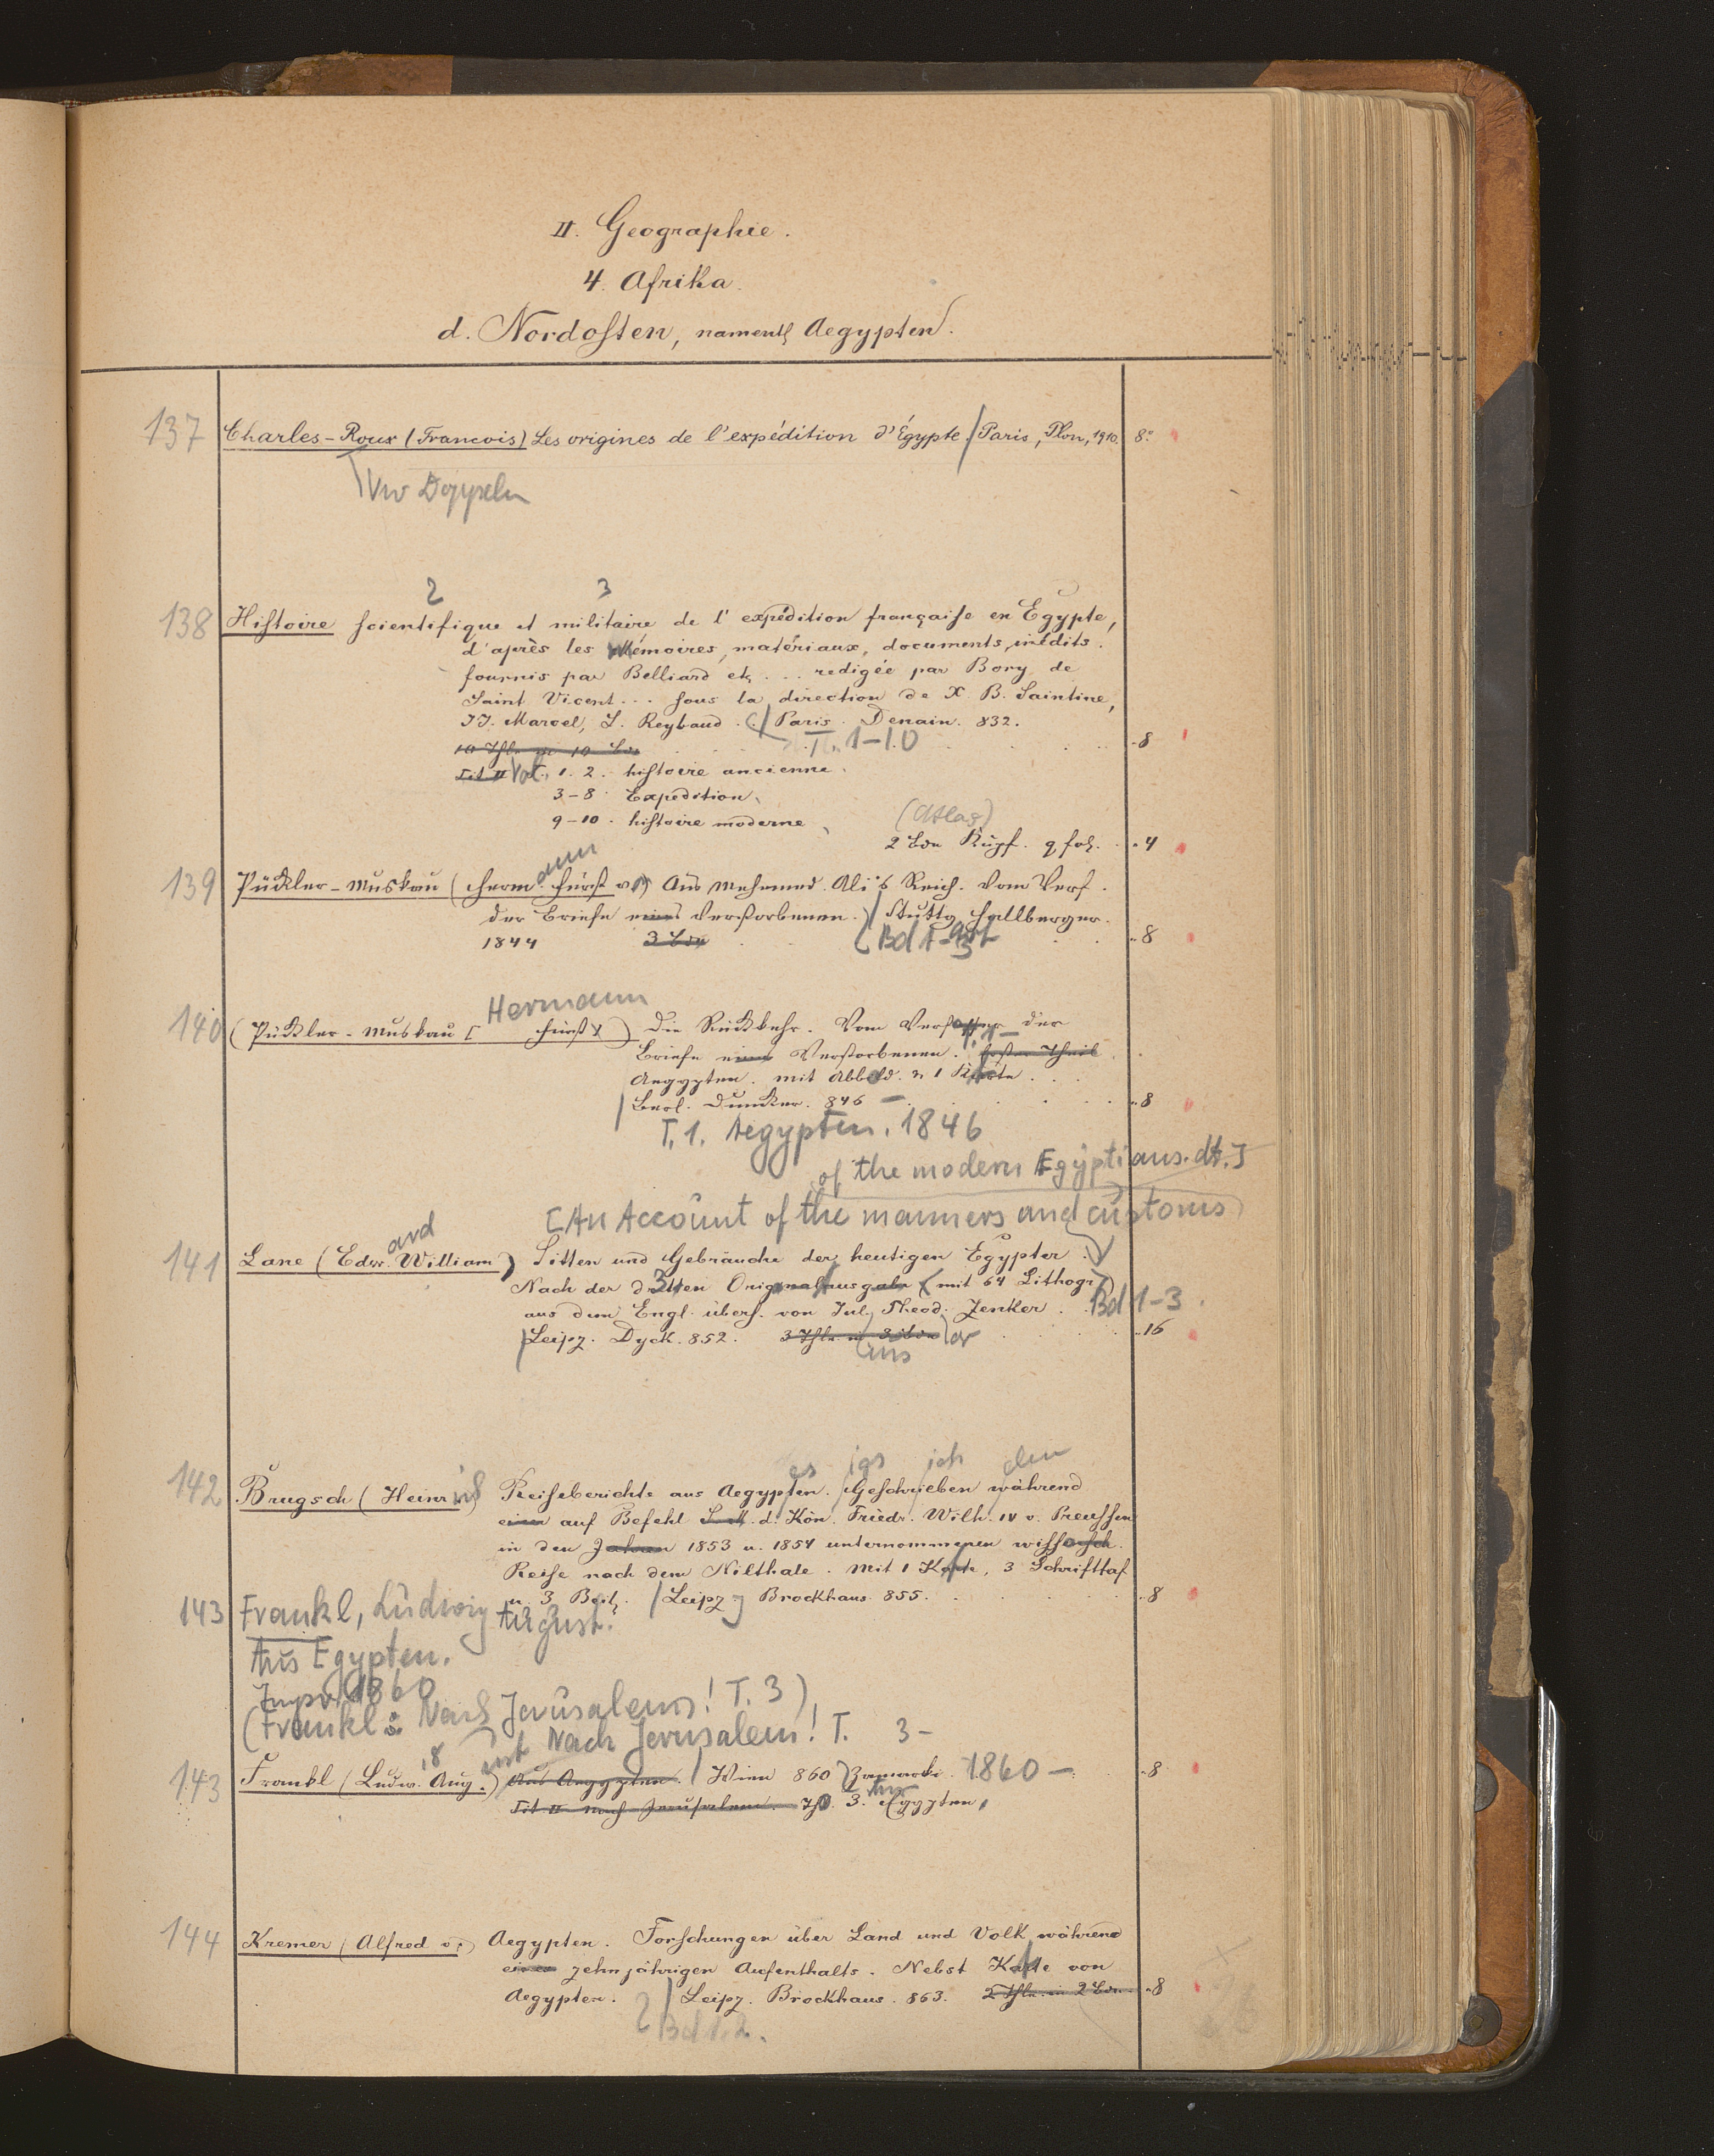 II. Geographie.
4. Afrika.
d. Nordosten, namentl. Aegypten.
137 Charles-Roux (Francois) Les origines de l'expédition d'Égypte. / Paris, Plon, 1910. 8°
Vw Doppeln
2 3
138 Histoire scientifique et militaire de l'expédition française en Egypte,
d'après les Mémoires, matériaux, documents, inédits.
fournis par Belliard etc ... redigée par Bory de
Saint Vicent ... sous la direction de X. B. Saintine,
J.J. Marcel, L. Reybaud. / Paris. Denain. 832.
10 Thle in 10 Bdn T. 1-10 8
Tit II Vol. 1. 2. histoire ancienne.
3-8. Expedition.
9-10. histoire moderne (Atlas)
2 Bde Kupf. q fol. 4
ann
139 Pückler-Muskau (Herm. Fürst v.) Aus Mehemed Ali's Reich. Vom Verf.
der Briefe eines Verstorbenen. / Stuttg. Hallberger.
1844 3 Bde Bd 1-3 8
Hermann
140 (Pückler-Muskau [ Fürst v) Die Rückkehr. Vom Verfasser der
Briefe eines Verstorbenen. T. 1- Erster Theil
Aegypten. mit Abbild. u. 1 Karte.
/ Berl. Duncker. 846 - 8
T. 1. Aegypten. 1846
of the modern Egyptians. dt.]
[An Account of the manners and customs
ard
141 Lane (Edw. William) Sitten und Gebräuche der heutigen Egypter.
Nach der dritten 3. Originalausgabe (mit 64 Lithogr)
aus dem Engl. übers. von Jul. Theod. Zenker. Bd 1-3.
/ Leipz. Dyck. 852. 3 Thle in 3 Bdn 16
ins
es igs ich den
142 Brugsch (Heinrich) Reiseberichte aus Aegypten. Geschrieben während
einer auf Befehl S. M. d. Kön. Friedr. Wilh. IV v. Preussen
in den Jahren 1853 u. 1854 unternommenen wissensch.
Reise nach dem Nilthale. Mit 1 Karte, 3 Schrifttaf
u. 3 Beil. / Leipz. Brockhaus. 855. 8
143 Frankl, Ludwig August.
Aus Egypten.
1860
(Frankl: Nach Jerusalem! T. 3)
ust Nach Jerusalem! T. 3-
143 Frankl (Ludw. Aug.) Aus Aegypten. / Wien 860 Zamarski 1860 - 8
Tit II Nach Jerusalem. Th. 3. Aus Egypten.
144 Kremer (Alfred v.) Aegypten. Forschungen über Land und Volk während
eines zehnjährigen Aufenthalts. Nebst Karte von
Aegypten. / Leipz. Brockhaus. 863. 2 Thle. in 2 Bdn. 8
Bd 1. 2.